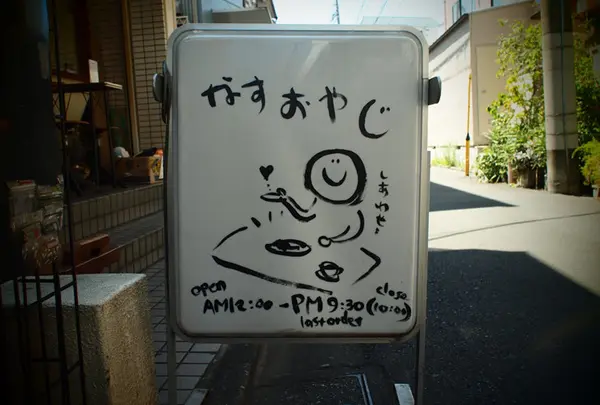 なすおやじ
しあわせ
open close
AM12:00-PM9:30(10:00)
lastorder